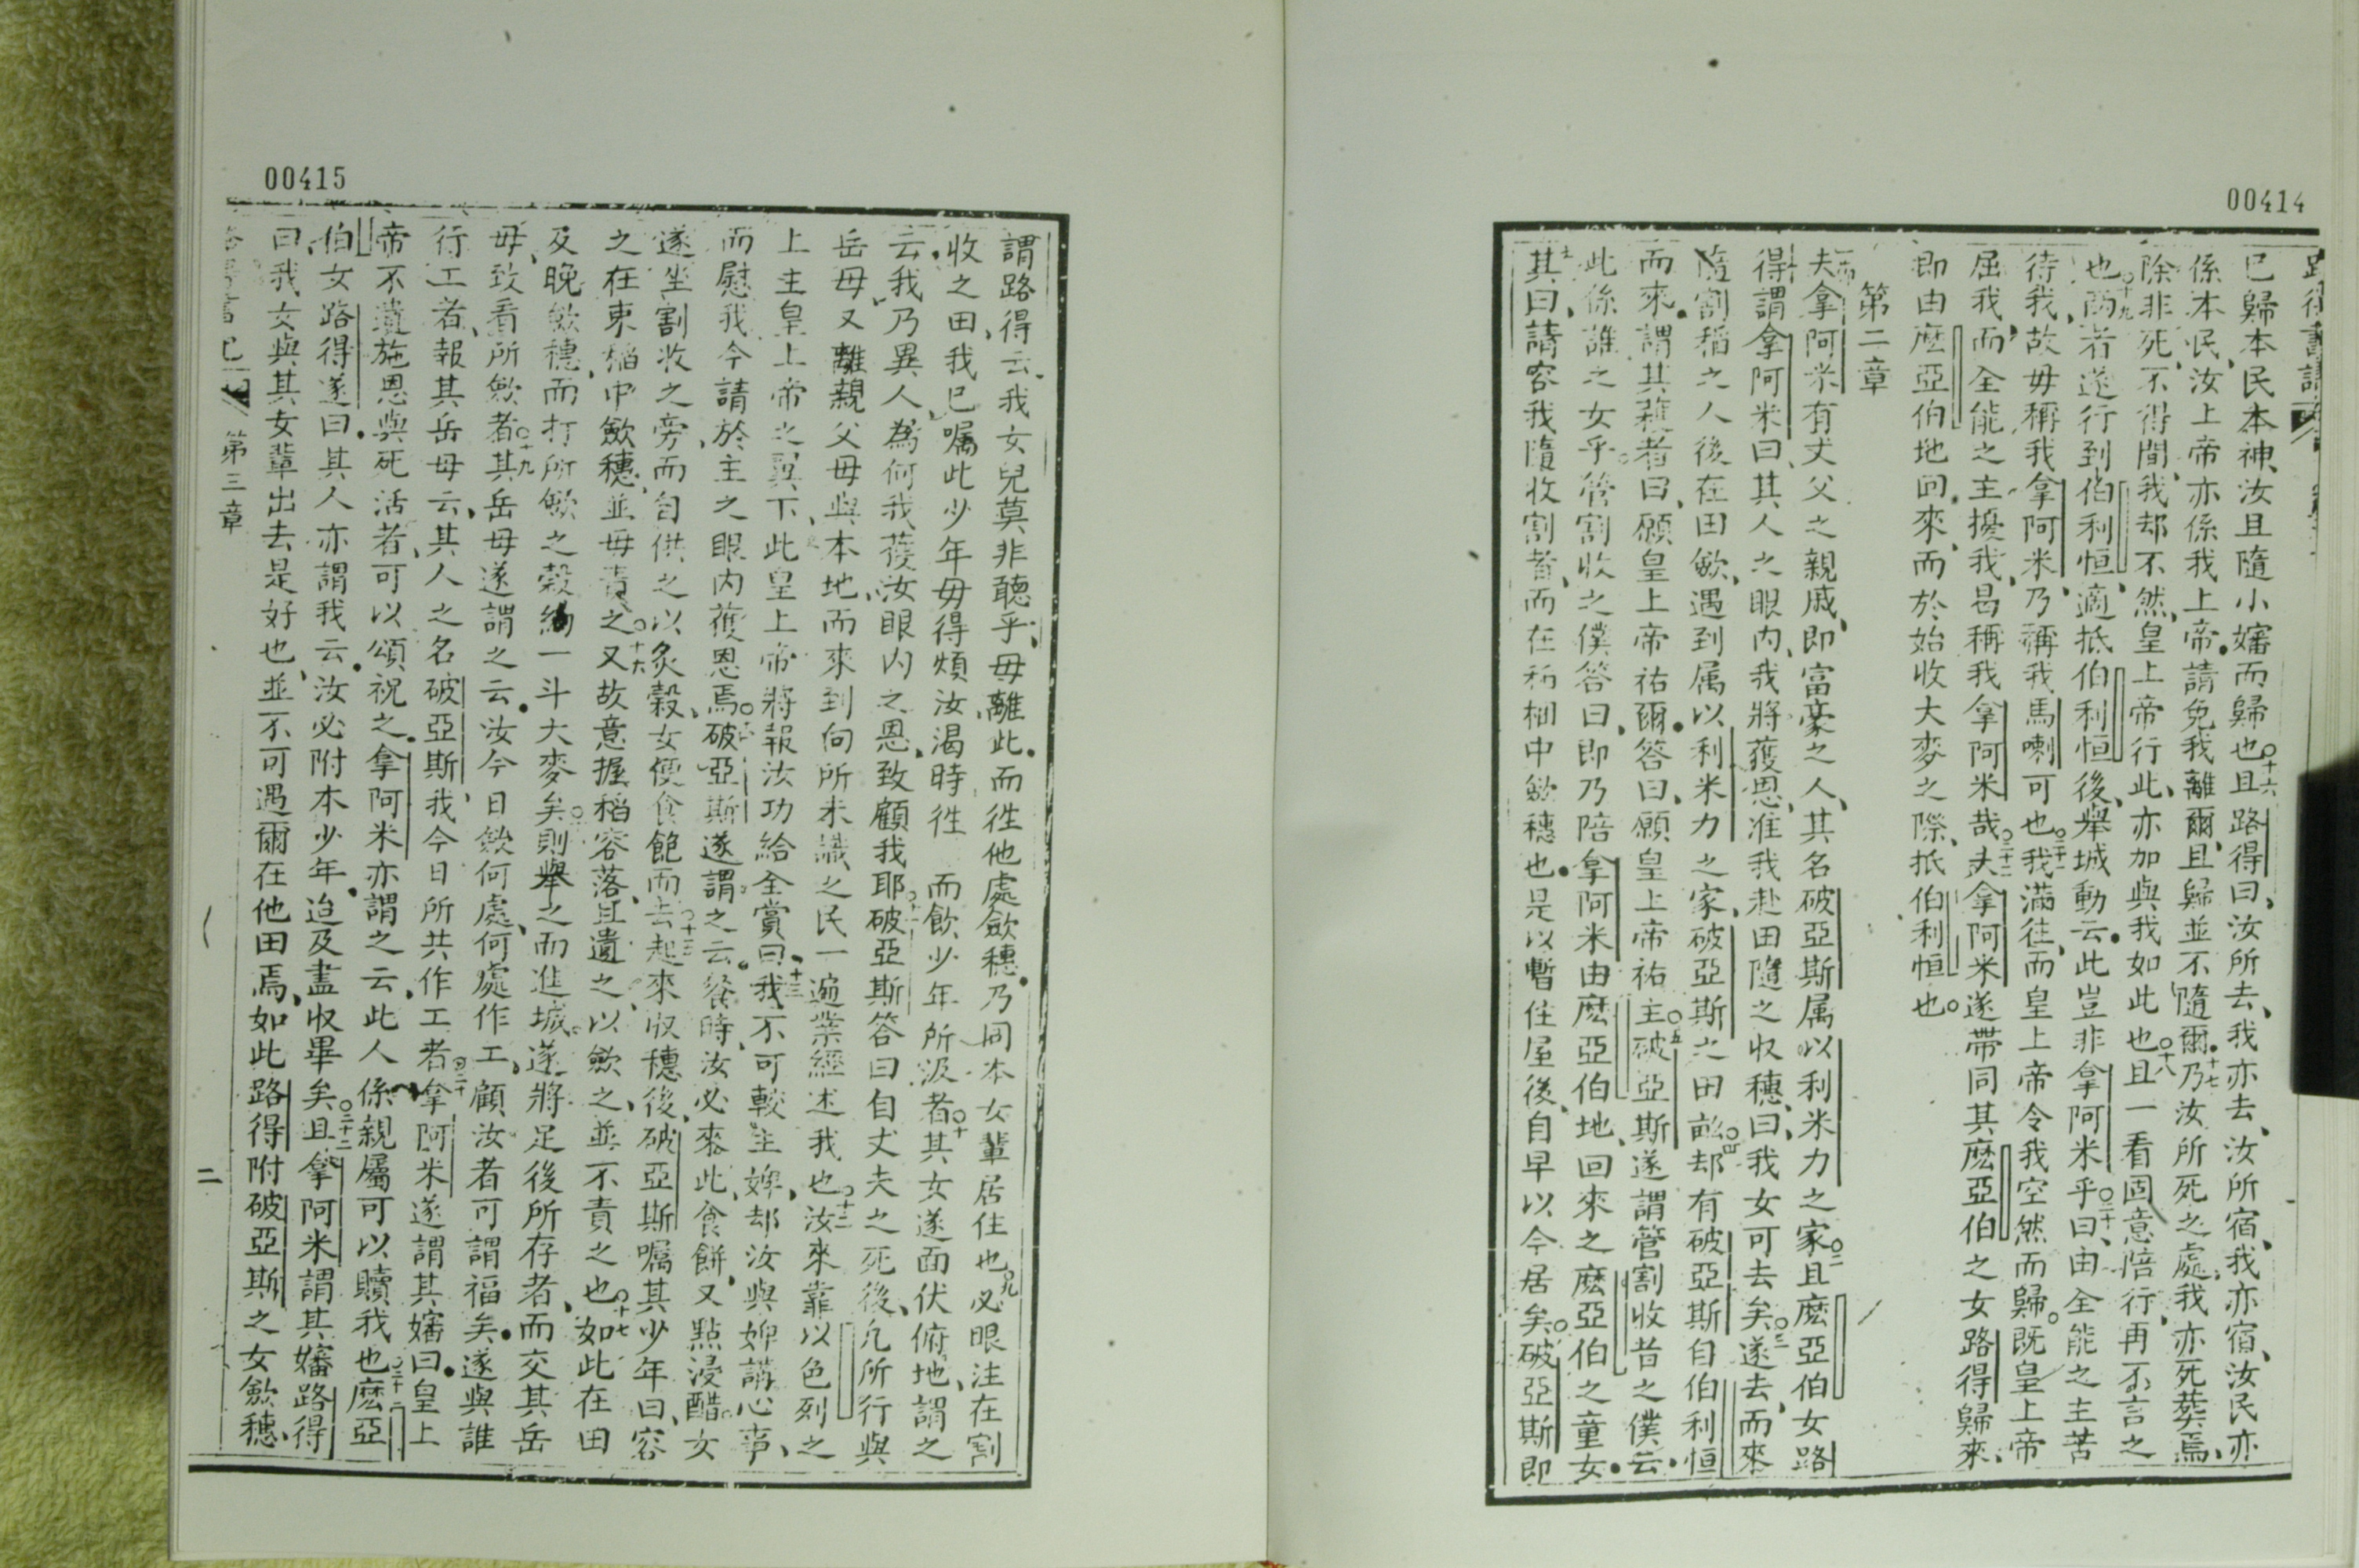 00414
已歸本民本神、汝且隨小嬸而歸也且路得曰、汝所去、我亦去、汝所宿、我亦宿、汝民亦
係本民、汝上帝亦係我上帝。請免我離爾、且歸並不隨爾。十七乃汝所死之處、我亦死葬焉、
除非死、不得間、我却不然、皇上帝行此、亦加與我如此也十八且一看固意陪行、再不言之
也十九両者遂行到伯利恒、適抵伯利恒後、舉城動云。此豈非拿阿米乎二十曰、由全能之主苦
待我、故毋稱我拿阿米、乃稱我馬喇可也二十一我滿往、而皇上帝令我空然而歸。既皇上帝
屈我、而全能之主擾我、曷稱我拿阿米哉二十二夫拿阿米遂帶同其庶亞伯之女路得歸來、
即由庶亞伯地回來、而於始收大麥之際、抵伯利恒也。
第二章
夫拿阿米有丈父之親戚、即富豪之人、其名破亞斯属以利米力之家二且庶亞伯女路
得謂拿阿米曰、其人之眼内、我將獲恩、准我赴田隨之收穗、曰、我女可去矣三遂去、而來
隨割稻之人後在田斂、遇到属以利米力之家、破亞斯之田訟四却有破亞斯自伯利恒
而來。謂其穫者曰、願皇上帝祐爾。答曰、願皇上帝祐主五破亞斯遂謂管割收者之僕云、
此係誰之女乎六管割收之僕答曰、即乃陪拿阿米由庶亞伯地、回來之庶亞伯之童女。
其曰、請容我隨收割者、而在稻柵中斂穗也。是以暫住屋後、自早以今居矣破亞斯即
00415
謂路得云、我女兒莫非聽乎、毋離此。而徃他處斂穗。乃同本女輩居住也九必眼注在割
收之田、我已囑此少年毋得煩汝、渴時徃而飲少年所汲者十其女遂面伏俯地、謂之
云、我乃異人、為何我獲汝眼内之恩、致顧我耶十一破亞斯答曰自丈夫之死後、凢所行與
岳母、又離親父母與本地而來到向所未識之民一遍業經述我也十二汝來靠以色列之
上主皇上帝之翼下、此皇上帝將報汝功給全賞十三曰、我不可較主婢、却汝與婢講心事、
而慰我今請於主之眼内獲恩焉破亞斯遂謂之云。餐時、汝必來此、食餅、又點浸醋。女
遂坐割收之旁、而自供之以炙穀、女便食飽而去十三起來收穗後、破亞斯囑其少年曰、容
之在束稻中斂穗、並毋責之十六又故意握稻容落、且遺之以斂之、並不責之也十七如此在田
及晚斂穗、而打所斂之穀約一斗大麥矣則舉之而進城、遂將足後所存者、而交其岳
母、致看所斂者十九其岳母遂謂之云。汝今日斂何處、何處作工、顧汝者可謂福矣。遂與誰
行工者、報其岳母云、其人之名破亞斯、我今日所共作工者二十拿阿米遂謂其嬸曰。皇上
帝不遺施恩與死活者、可以頌祝之。拿阿米亦謂之云、此人係親屬可以贖我也二十一庶亞
伯女路得遂曰。其人亦謂我云。汝必附本少年、迨及盡收畢矣二十二且拿阿米謂其嬸路得
曰、我女與其女輩出去是好也、並不可遇爾在他田焉、如此路得附破亞斯之女斂穗、
第三章
二